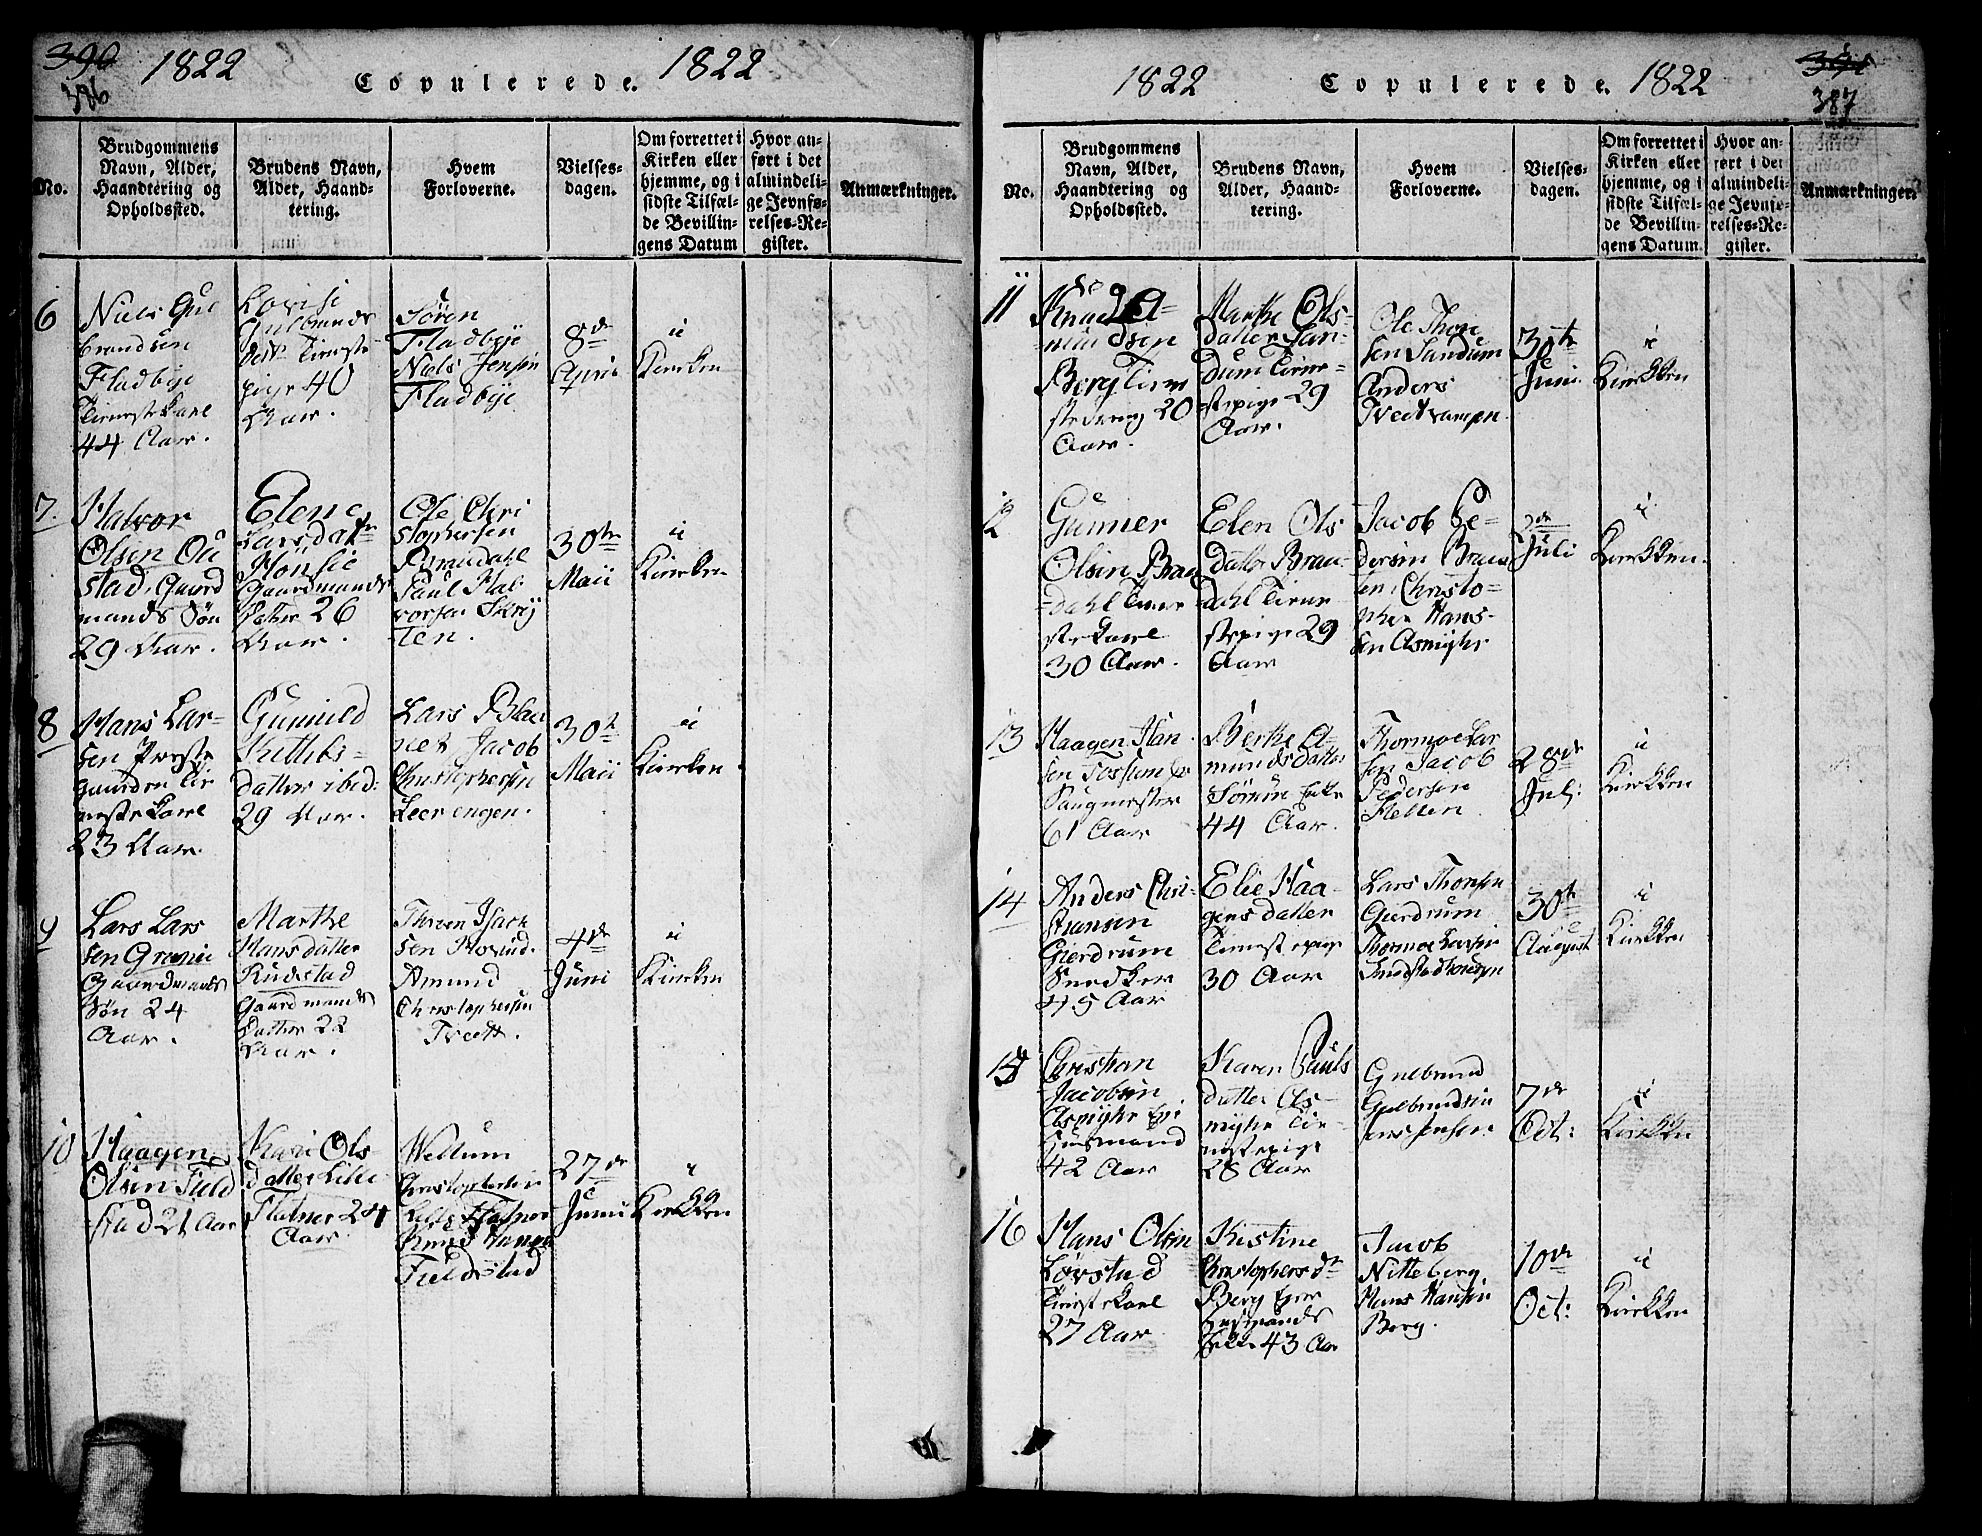 390
386
1822
Copulerede.
1822
No.
Brudgommens
Navn, Alder,
Haandtering og
Opholdssted.
Brudens Navn,
Alder, Haand-
tering.
Hvem
Forloverne.
Vielses-
dagen.
Om forrettet i
Kirken eller
hjemme, og i
sidste Tilfæl-
de Bevillin-
gens Datum
Hvor an-
ført i det
almindeli-
ge Jevnfø-
relses-Re-
gister.
Anmærkninger.
6
Niels Gul
brandsen
Fladbye
Tienestekarl
44 Aar.
Lovise
Gulbrands
datr Tieneste
pige 40
Aar.
Sören
Fladbye
Niels Jensen
Fladbye
8de
April
i
Kierken
7
Halvor
Olsen Ou
stad, Gaard
mands Søn
29 Aar.
Elene
Larsdatr
Mönsie
Gaardmands
Datter 26
Aar.
Ole Chri
stophersen
Braadahl
Paul Hal
vorsen Skrij
ten.
30te
Maii
i
Kierken
8
Hans Lar-
sen Preste
gaarden Tie
nestekarl
23 Aar.
Gunild
Kittils-
datter ibid:
29 Aar.
Lars
Jacob
Christophersen
Leerengen.
30te
Maii
i
Kierken.
9
Lars Lars
sen Grønie
Gaardmands
Søn 24
Aar.
Marthe
Hansdatter
Rudstad
Gaardmands
Datter 22
Aar.
Isack
sen
Amund
Christophersen
Tveett.
4de
Juni
i
Kierken
10
Haagen
Olsen Field
stad 21 Aar
Kari Ols
datter Lille
Flatner 24
Aar.
Wellum
Christophersen
Lille Flatner
Knud Hansen
Fieldstad
27de
Junii
i
Kierkken
1822
Copulerede.
1822
387
No.
Brudgommens
Navn, Alder,
Haandtering og
Opholdssted.
Brudens Navn,
Alder, Haand-
tering.
Hvem
Forloverne.
Vielses-
dagen.
Om forrettet i
Kirken eller
hjemme, og i
sidste Tilfæl-
de Bevillin-
gens Datum.
Hvor an-
ført i det
almindeli-
ge Jevnfø-
relses-Re-
gister.
Anmærkninger.
11
Knud A-
mundsen
Berg Tiene
stedreng 20
Aar.
Marthe Ols-
datter San-
dum Tiene-
stepige 29
Aar.
Ole Thore
sen Sandum
Anders
Tveitrampen.
30te
Juni
i
Kierkken
12
Gunner
Olsen Braa
-dahl Tiene
stekarl
30 Aar.
Elen Ols
datter Braa-
dahl Tiene
stepige 29
Aar
Jacob Pe-
dersen Braa
Christo-
pher Hans-
sen Asmyhr
2de
Juli
i
Kierkken.
13
Haagen Han
sen Fossum
Saugmester
61 Aar
Berthe A-
munds datter
Sörum Enke
44 Aar.
Thormoe Lar
sen Jacob
Pedersen
28de
Juli
i
Kierkken
14
Anders Chri-
stiansen
Gierdrum
Snedker
45 Aar
Elie Haa-
gensdatter
Tienestepige
30 Aar
Lars Thoresen
Gierdrum
Thormoe Larsen
30te
August
i
Kierkken
15
Christian
Jacobsen
Asmyhr
Huusmand
42 Aar
Karen Pauls
datter As-
myhr Tie-
nestepige
28 Aar
Gulbrand
Gulbrandsen
Jens Jensen
7de
Oct:
i
Kierkken
16
Hans Olsen
Lörstad
Tienestekarl
27 Aar
Kistine
Christophersdr
Berg
Huusmands
Enke 43 Aar
Jacob
Nitteberg
Hans Hansen
Berg.
10de
Oct:
i
Kierkken